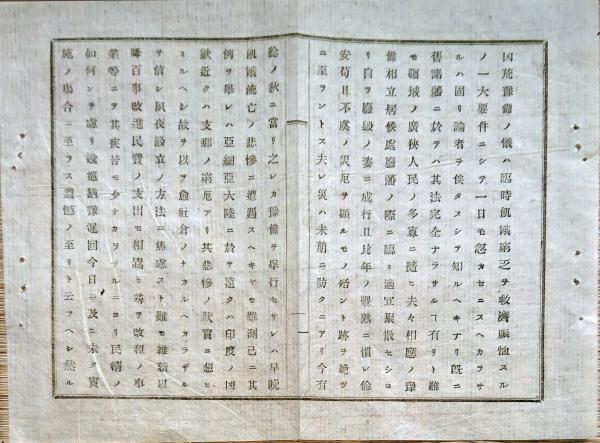 凶荒豫備ノ儀ハ臨時飢餓窮乏ヲ救濟賑恤スル
ノ一大要件ニシテ一日モ忽カセニスヘカラサ
ルハ固リ論者ヲ俟タスシテ知ルヘキナリ既ニ
舊諸藩ニ於テハ其法完全ナラサルコ有リト雖
モ疆域ノ廣狹人民ノ多寡ニ隨ヒ夫々相應ノ豫
備相立居候處廢藩ノ際ニ臨ミ適宜聚散セシコ
リ自ヲ廢毀ノ姿ニ成行且比年ノ豐熟ニ慣レ偸
安苟且不虞ノ災厄ヲ顧ルモノ殆ント跡ヲ絶ツ
ニ至ラントス夫レ災ハ未前ニ防クニアリ今有
餘ノ秋ニ當リ之レカ豫備ヲ擧行セサレハ早晩
飢餓流亡ノ悲慘ニ遭遇スヘキヤモ難測已ニ其
例ヲ擧レハ亞細亞大陸ニ於テ遠クハ印度ノ凶
歉近クハ支那ノ窮厄アリ其悲慘ノ狀實ニ想ヒ
ミルヘシ故ヲ以テ愈社倉ノナカルヘカラザル
ヲ信シ夙夜設立ノ方法ニ焦慮スト雖モ維新以
降百事改進民費ノ支出モ相嵩ミ尋ヲ改租ノ事
業等ニヲ其疾苦モ少ナカラザルニヨリ民情ノ
如何ンヲ慮リ逡巡猶豫遲回今日ニ及ヒ未タ實
施ノ場合ニ至ラス遺憾ノ至リト云フヘシ然ル